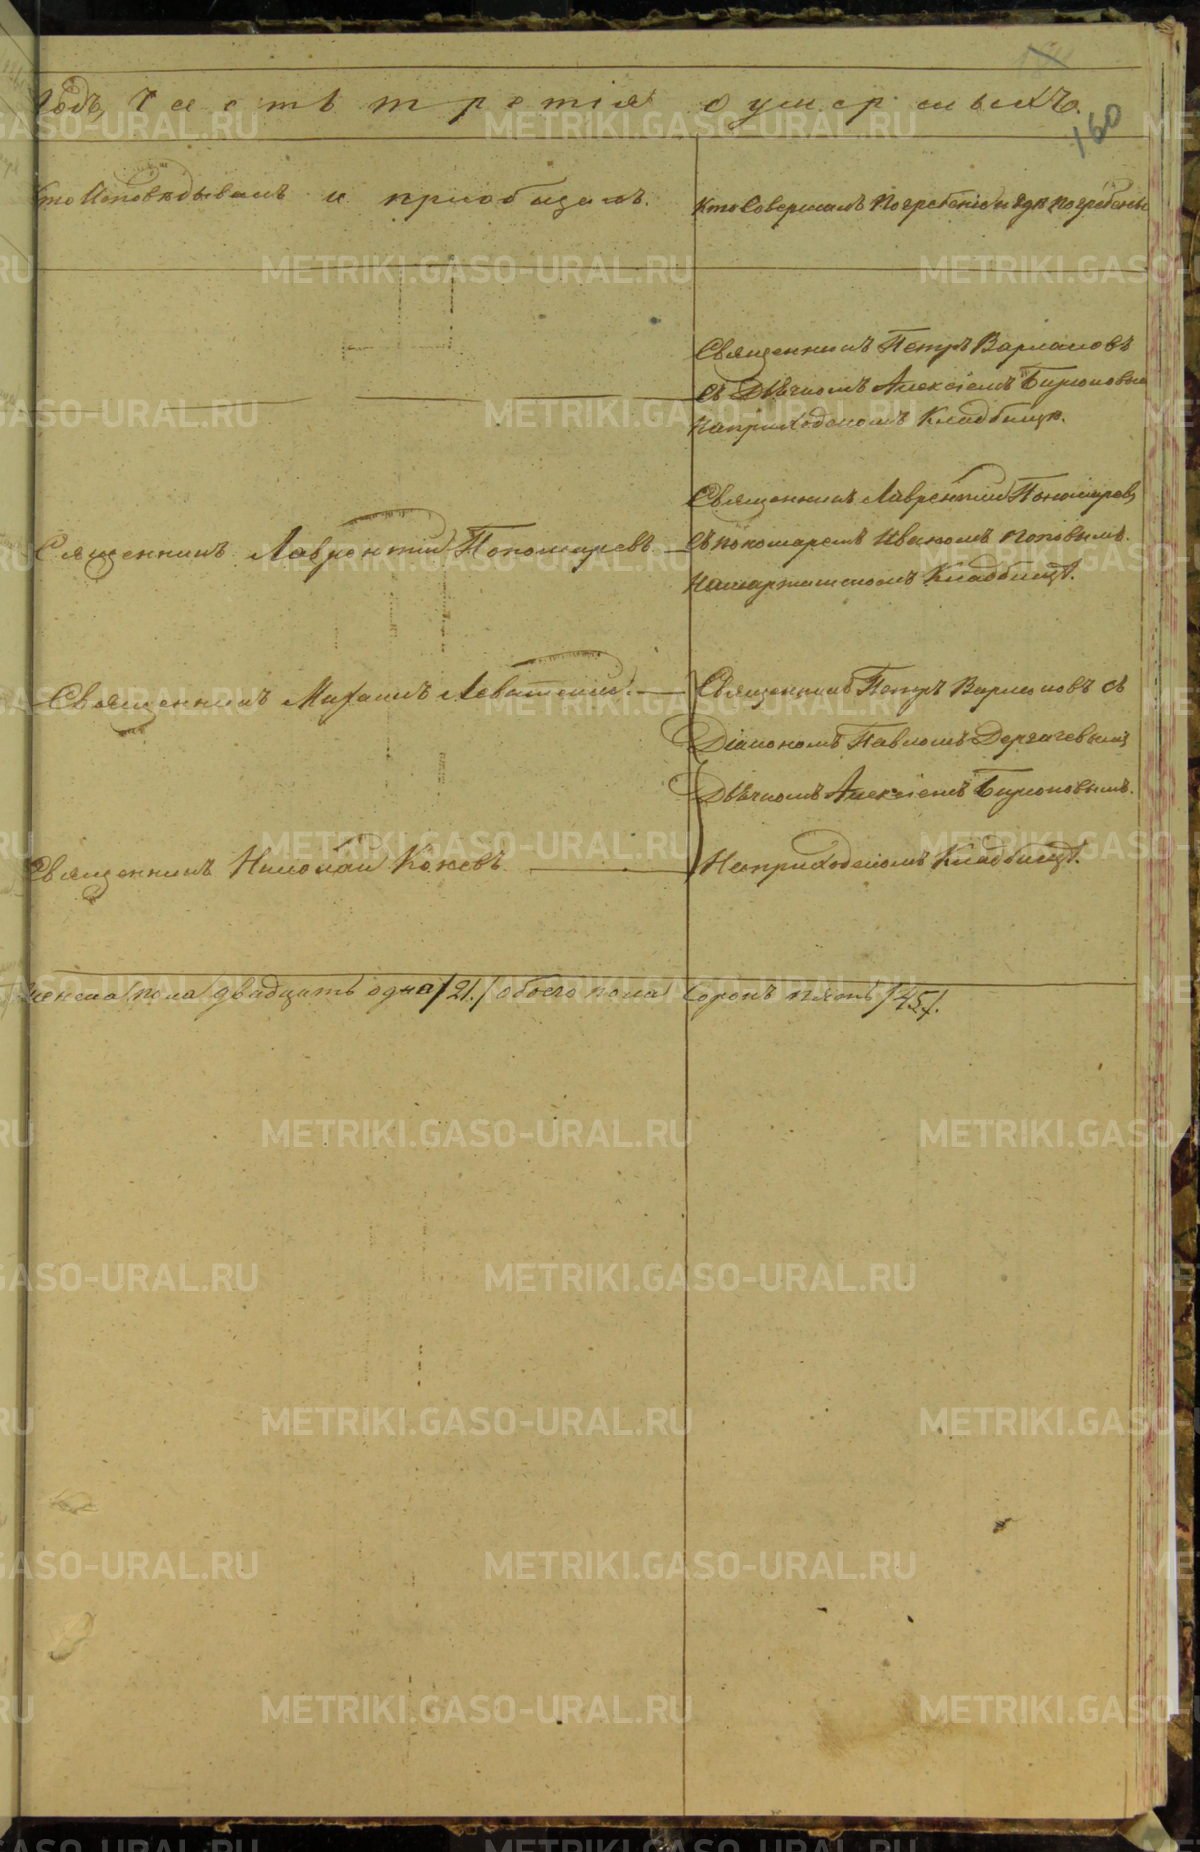 Годъ, часть третія о умершихъ.
160
Кто Исповѣдывалъ и приобщалъ.
Кто Совершалъ Погребеніе и Гдѣ Погребены
Священникъ Петръ Варлаковъ
съ Дьячкомъ Алексіемъ Бирюковым
На приходскомъ Кладбищѣ.
Священникъ Лаврентій Пономаревъ
Священникъ Лаврентій Пономаревъ
съ пономаремъ Иваномъ Поповымъ.
На Кладбищѣ.
Священникъ Михаилъ Левитскій.
Священникъ Петръ Варлаковъ съ
Діакономъ Павломъ Дергачевымъ
Дьячкомъ Алексіемъ Бирюковымъ.
Священникъ Николай Кокевъ
На приходскомъ Кладбищѣ.
женска пола двадцать одна /21./ обоего пола Сорокъ пять /45/.
METRIKI.GASO-URAL.RU